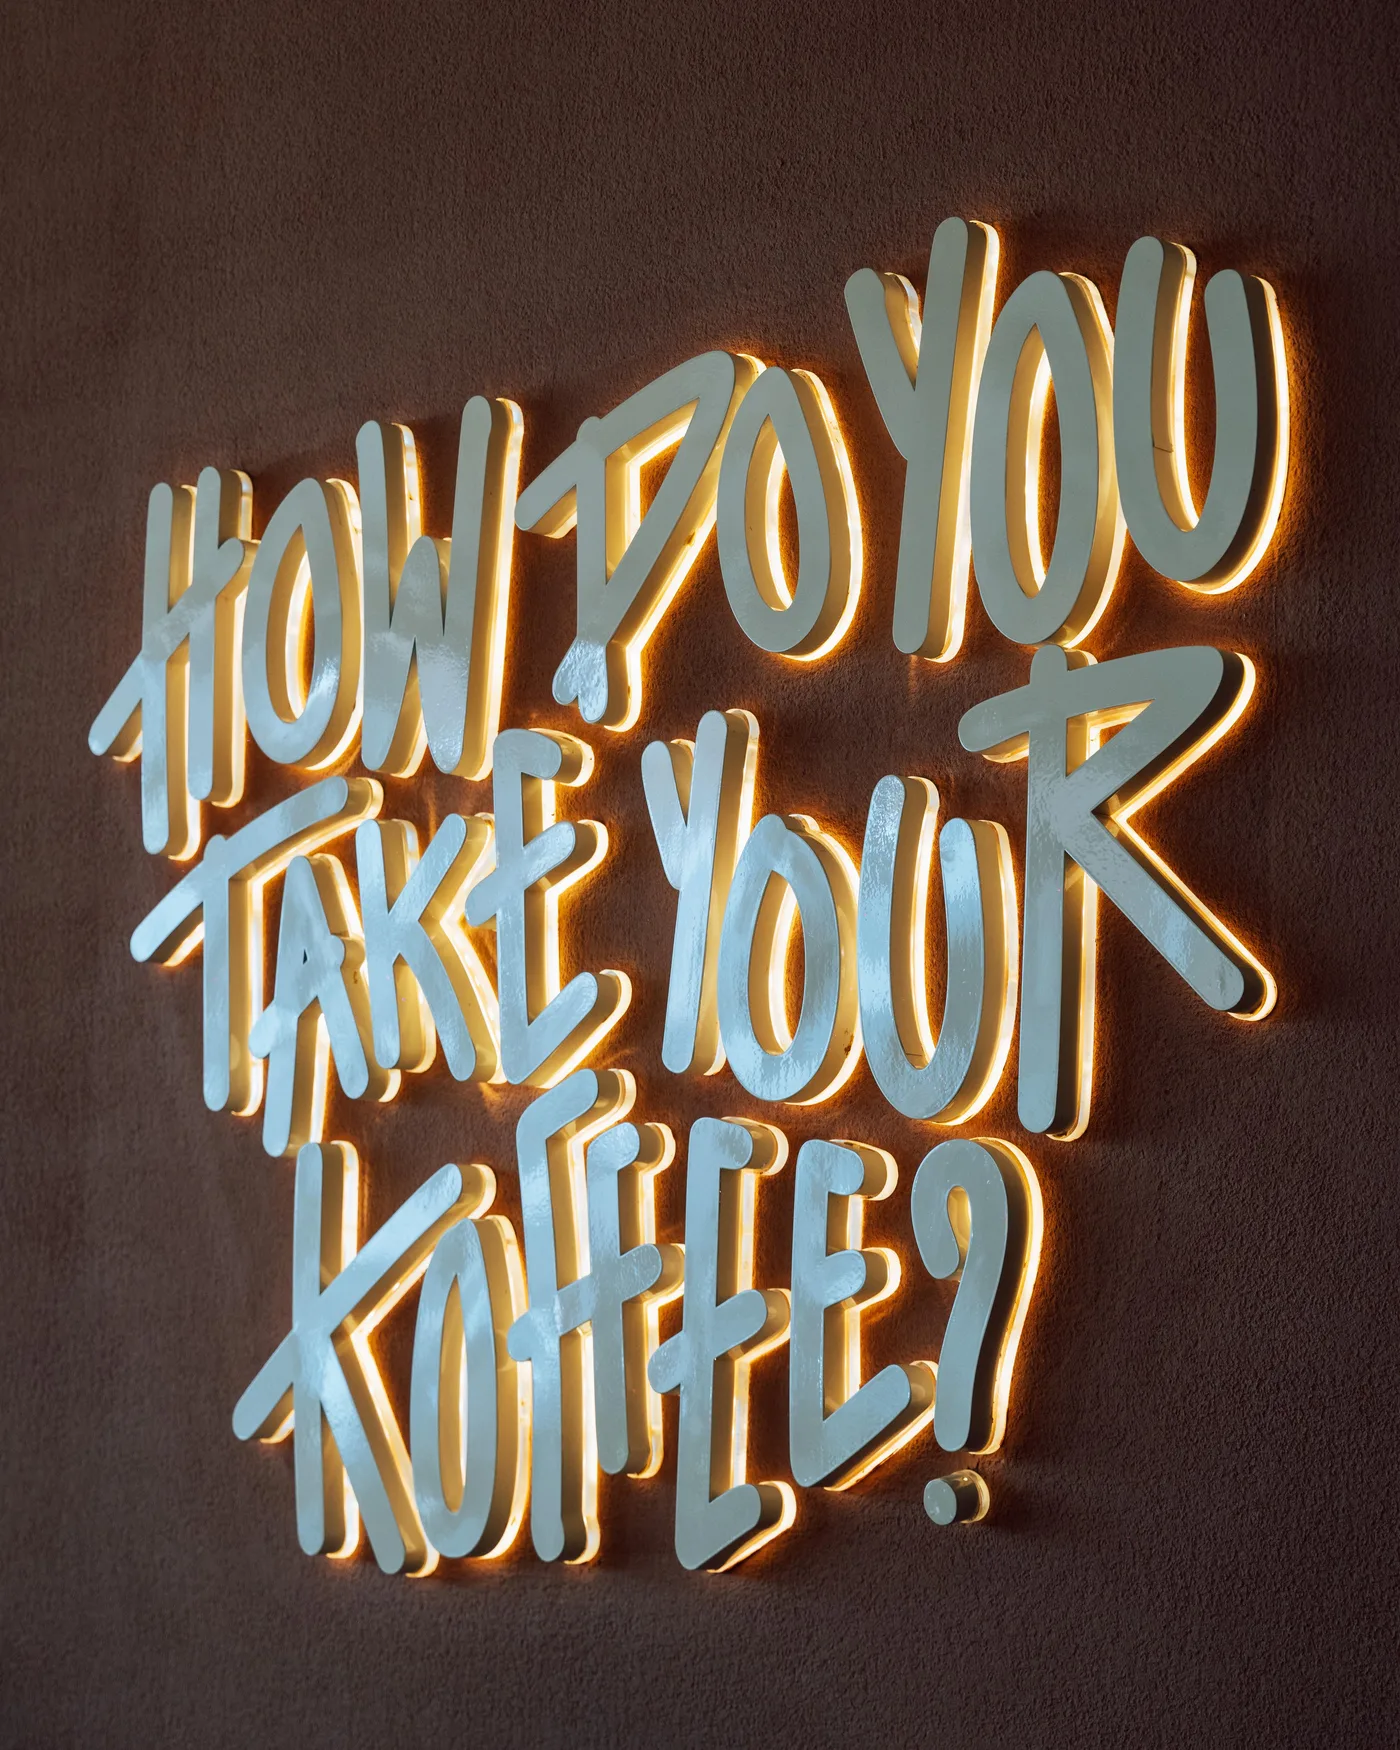 HOW DO YOU
TAKE YOUR
KOFFEE?